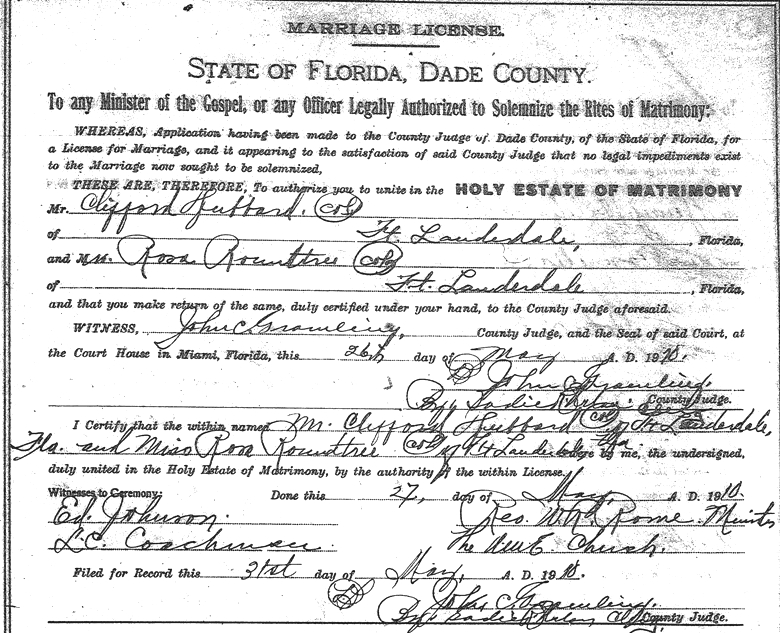 MARRIAGE LICENSE.
STATE OF FLORIDA, DADE COUNTY.
To any Minister of the Gospel, or any Officer Legally Authorized to Solemnize the Rites of Matrimony:
WHEREAS, Application having been made to the County Judge of Dade County, of the State of Florida, for
a License for Marriage, and it appearing to the satisfaction of said County Judge that no legal impediments exist
to the Marriage now sought to be solemnized,
THESE ARE, THEREFORE, To authorize you to unite in the HOLY ESTATE OF MATRIMONY
Mr. Clifford Hubbard. (col)
of Ft. Lauderdale, , Florida,
and M Rosa Rountree (col)
of Ft. Lauderdale , Florida,
and that you make return of the same, duly certified under your hand, to the County Judge aforesaid.
WITNESS, John C. Gramling, County Judge, and the Seal of said Court, at
the Court House in Miami, Florida, this 26th day of May A. D. 1910.
John C. Gramling.
By: Sadie County Judge.
I Certify that the within named Mr. Clifford Hubbard (col) of Ft Lauderdale,
Fla. and Miss Rosa Rountree (col) of Ft Lauderdale Fla. were by me, the undersigned,
duly united in the Holy Estate of Matrimony, by the authority of the within License.
Witnesses to Ceremony: Done this 27, day of May, A. D. 1910.
Ed. Johnson. Rev. W. Rome. Minister
L. C. Coachman The A.M.E. Church.
Filed for Record this 31st day of May, A. D. 1910.
John C. Gramling.
By: Sadie County Judge.